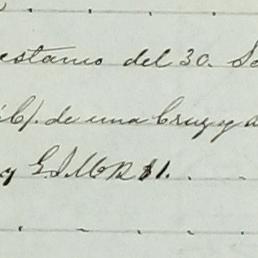 estamo del 30. S
C/. de una Cruz y a
y G. I M D $1.